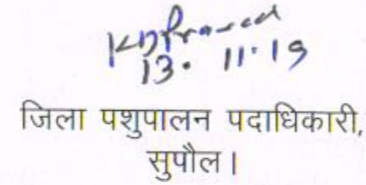 13. 11.19
जिला पशुपालन पदाधिकारी,
सुपौल।